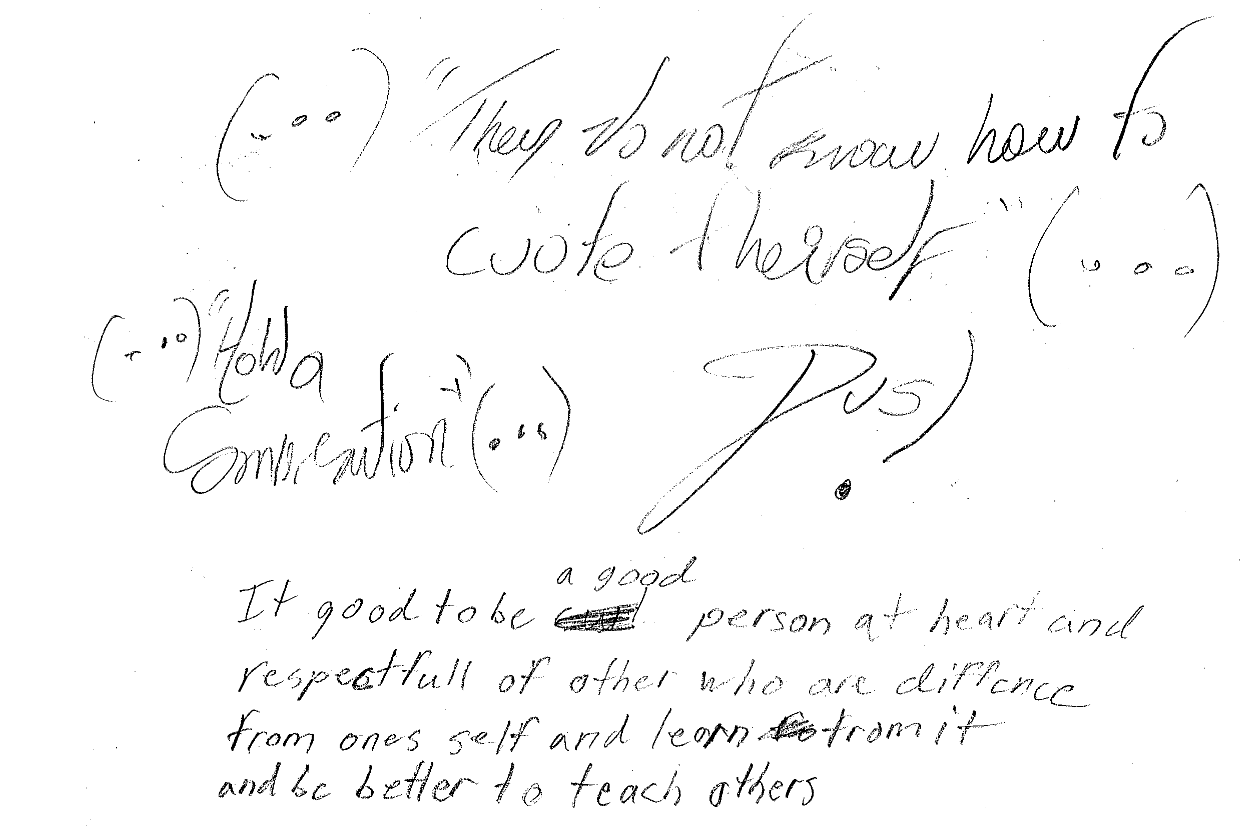 (...) "They do not know how to
cuote therself" (...)
(...) "Hold a
Conversation" (...)
Pus)
.
It good to be a good person at heart and
respectfull of other who are diffence
from ones self and learn from it
and be better to teach others